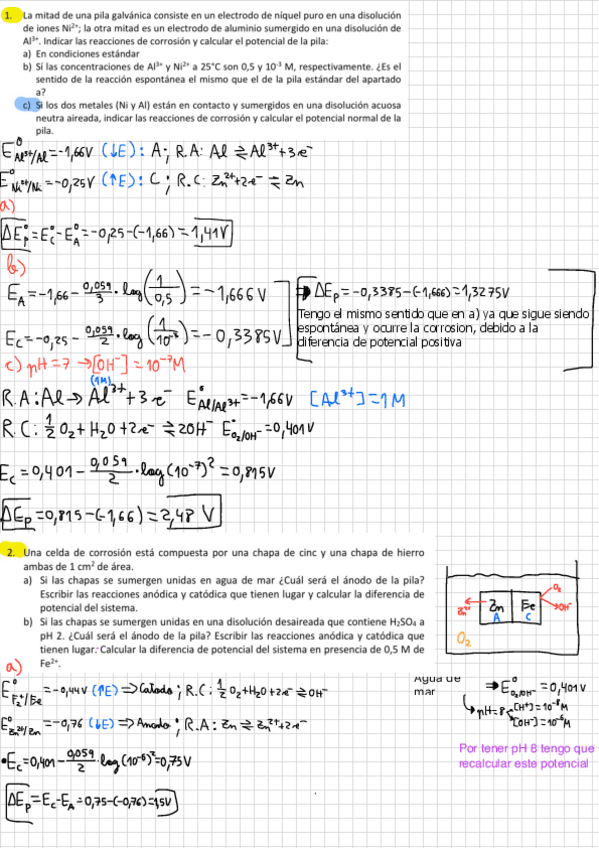 1. La mitad de una pila galvánica consiste en un electrodo de níquel puro en una disolución
de iones Ni²⁺; la otra mitad es un electrodo de aluminio sumergido en una disolución de
Al³⁺. Indicar las reacciones de corrosión y calcular el potencial de la pila:
a) En condiciones estándar
b) Sí las concentraciones de Al³⁺ y Ni²⁺ a 25°C son 0,5 y 10⁻³ M, respectivamente. ¿Es el
sentido de la reacción espontánea el mismo que el de la pila estándar del apartado
a?
c) Si los dos metales (Ni y Al) están en contacto y sumergidos en una disolución acuosa
neutra aireada, indicar las reacciones de corrosión y calcular el potencial normal de la
pila.
E°Al³⁺/Al = -1,66V (↓E): A; R.A: Al ⇌ Al³⁺ + 3e⁻
E°Ni²⁺/Ni = -0,25V (↑E): C; R.C: Zn²⁺ + 2e⁻ ⇌ Zn
a)
ΔE°p = E°c - E°A = -0,25 - (-1,66) = 1,41V
b)
EA = -1,66 - 0,059/3 · log(1/0,5) = -1,666 V
⇒ ΔEp = -0,3385 - (-1,666) = 1,3275V
Tengo el mismo sentido que en a) ya que sigue siendo
espontánea y ocurre la corrosion, debido a la
diferencia de potencial positiva
Ec = -0,25 - 0,059/2 · log(1/10⁻³) = -0,3385V
c) pH = 7 → [OH⁻] = 10⁻⁷M
(1M)
R.A: Al → Al³⁺ + 3e⁻ E°Al/Al³⁺ = -1,66V [Al³⁺] = 1M
R.C: 1/2 O₂ + H₂O + 2e⁻ ⇌ 2OH⁻ E°O₂/OH⁻ = 0,401V
Ec = 0,401 - 0,059/2 · log(10⁻⁷)² = 0,815V
ΔEp = 0,815 - (-1,66) = 2,48 V
2. Una celda de corrosión está compuesta por una chapa de cinc y una chapa de hierro
ambas de 1 cm² de área.
a) Si las chapas se sumergen unidas en agua de mar ¿Cuál será el ánodo de la pila?
Escribir las reacciones anódica y catódica que tienen lugar y calcular la diferencia de
potencial del sistema.
b) Si las chapas se sumergen unidas en una disolución desaireada que contiene H₂SO₄ a
pH 2. ¿Cuál será el ánodo de la pila? Escribir las reacciones anódica y catódica que
tienen lugar. Calcular la diferencia de potencial del sistema en presencia de 0,5 M de
Fe²⁺.
Zn²⁺ Zn Fe O₂
A C OH⁻
O₂
a)
E°F₂⁺/Fe = -0,44V (↑E) ⇒ Catodo; R.C: 1/2 O₂ + H₂O + 2e⁻ ⇌ OH⁻
E°Zn²⁺/Zn = -0,76 (↓E) ⇒ Anodo; R.A: Zn ⇌ Zn²⁺ + 2e⁻
• Ec = 0,401 - 0,059/2 · log(10⁻⁶)² = 0,75V
ΔEp = Ec - EA = 0,75 - (-0,76) = 1,5V
Agua de
mar
⇒ E°O₂/OH⁻ = 0,401V
pH = 8 [H⁺] = 10⁻⁸M
[OH⁻] = 10⁻⁶M
Por tener pH 8 tengo que
recalcular este potencial